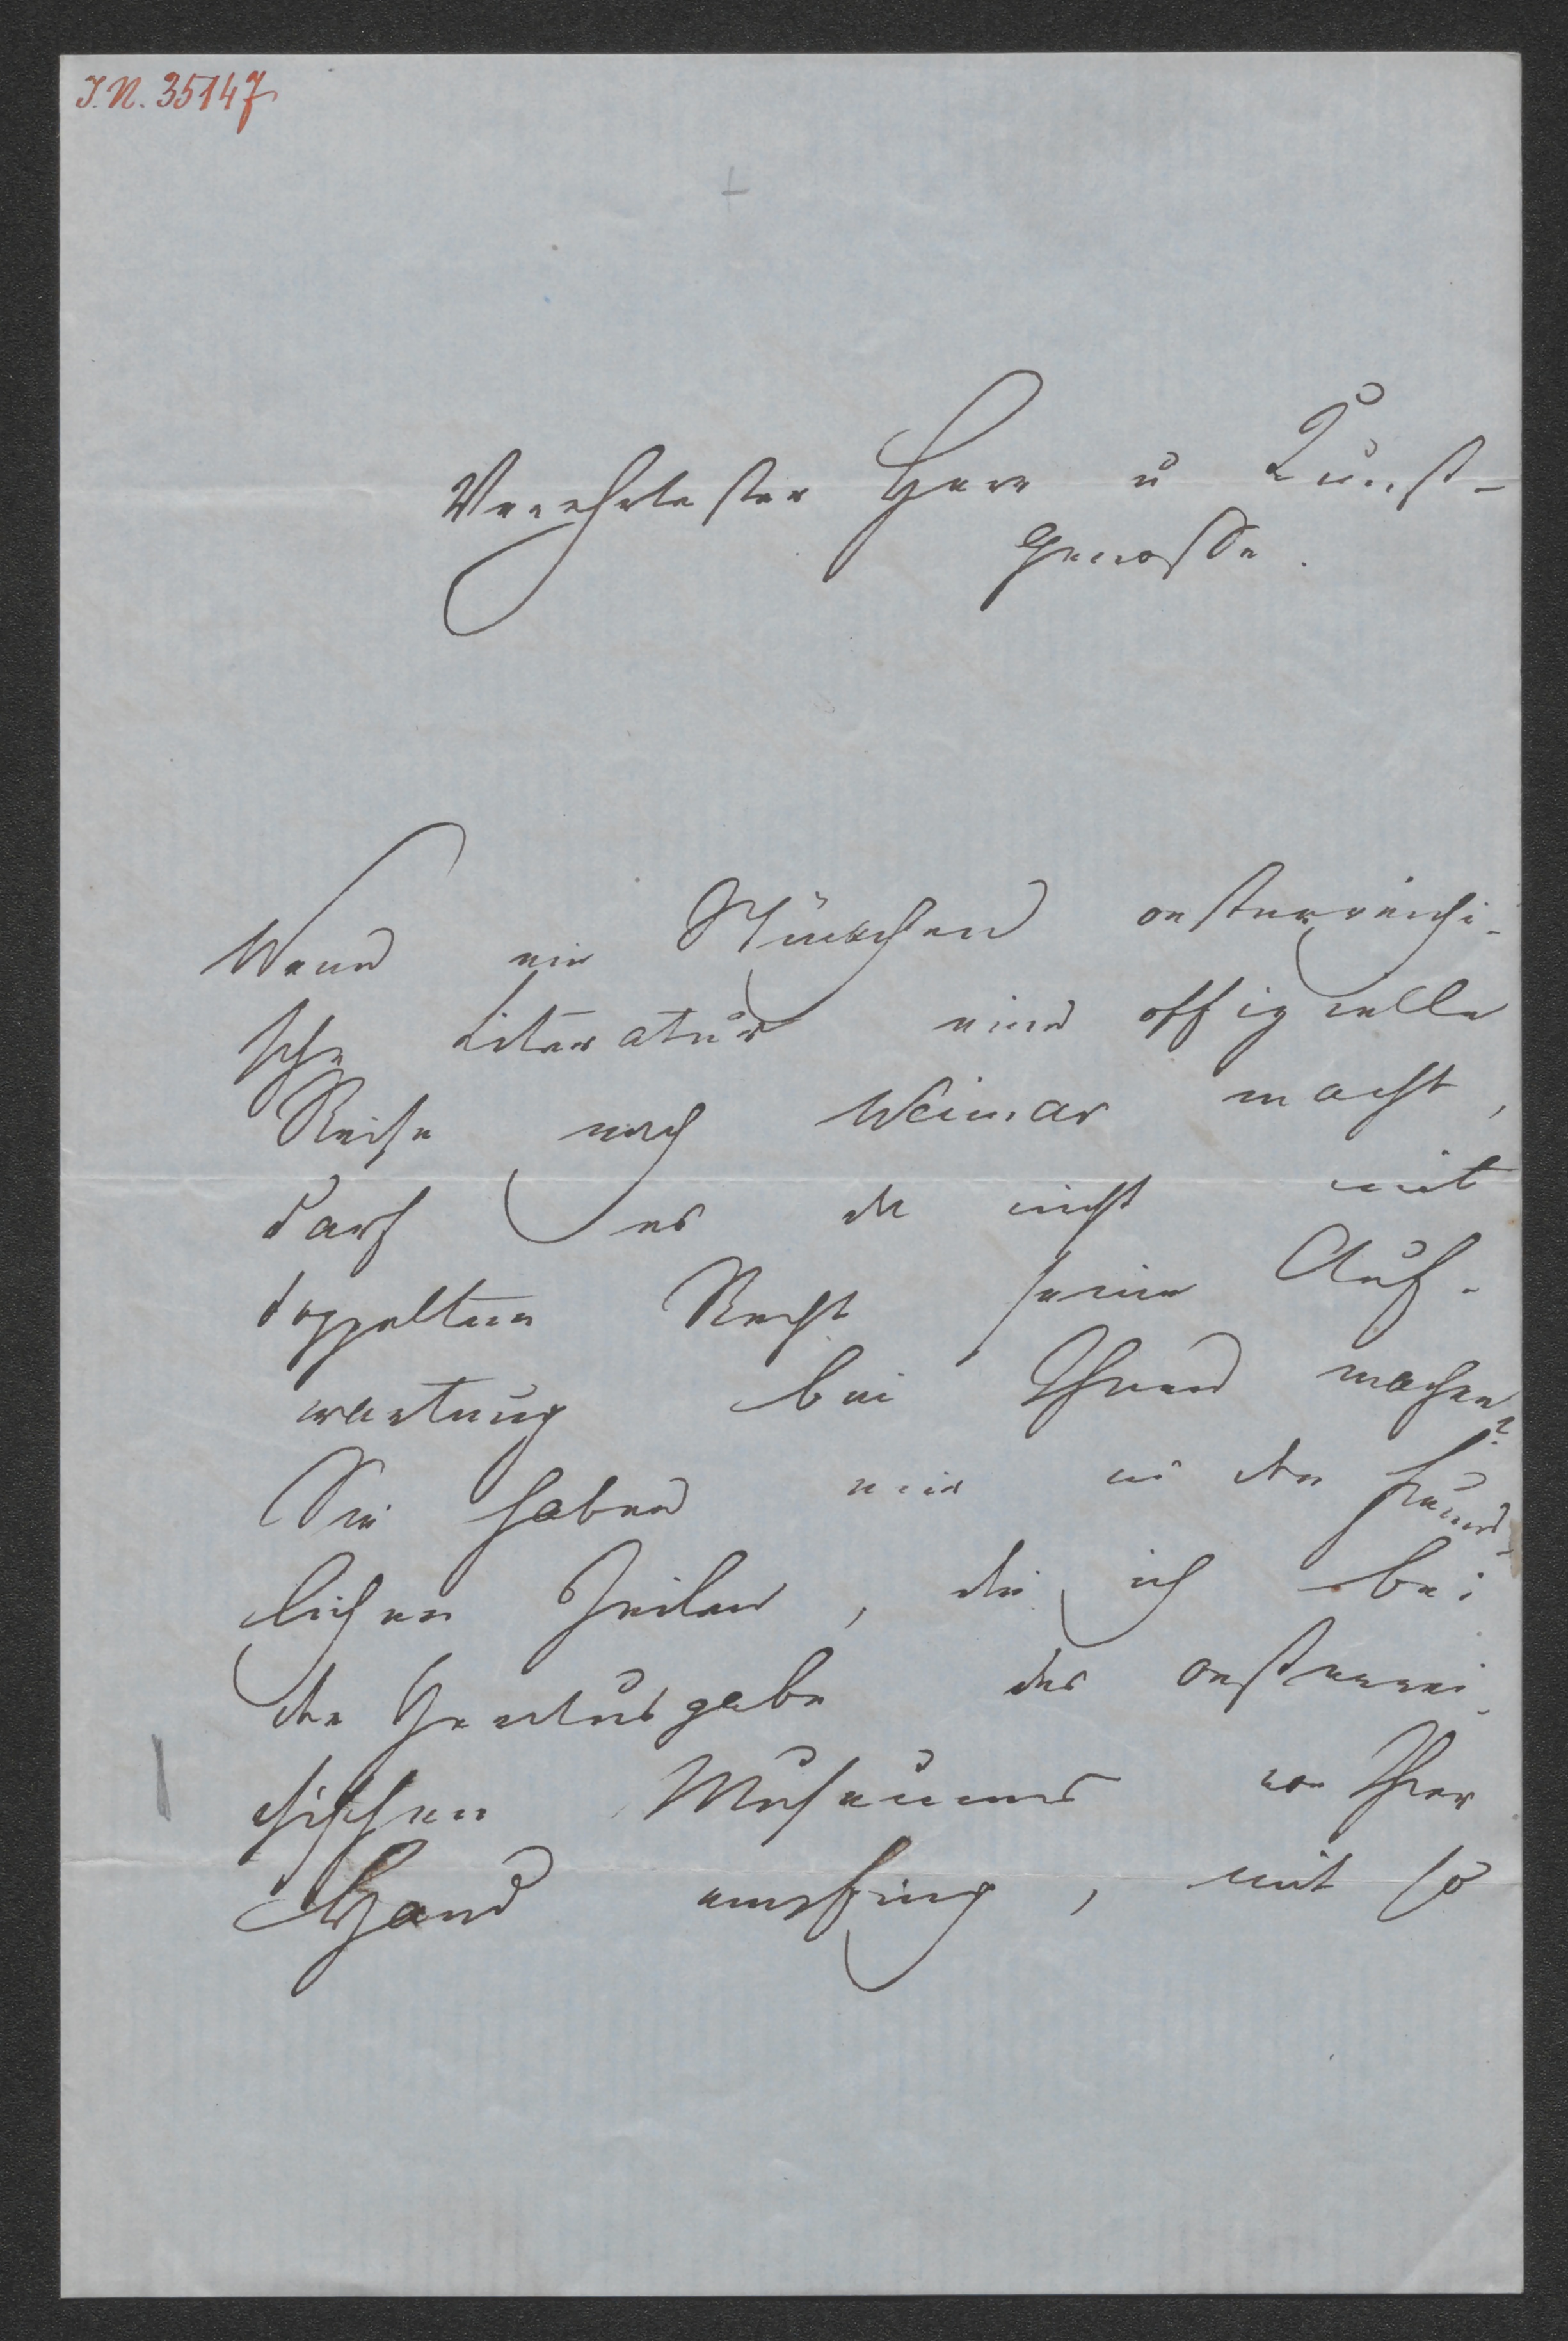 J.N. 35147
Verehrtester Herr u Kunst-
genosse.
Wenn ein Stückchen oesterreichi-
sche Literatur eine offizielle
Reise nach Weimar macht,
darf es da nicht mit
doppeltem Recht seine Auf-
wartung bei Ihnen machen?
Sie haben mir in den freund-
lichen Zeilen, die ich bei
der Herausgabe des oesterrei-
chischen Museums von Ihrer
Hand empfing, mit so